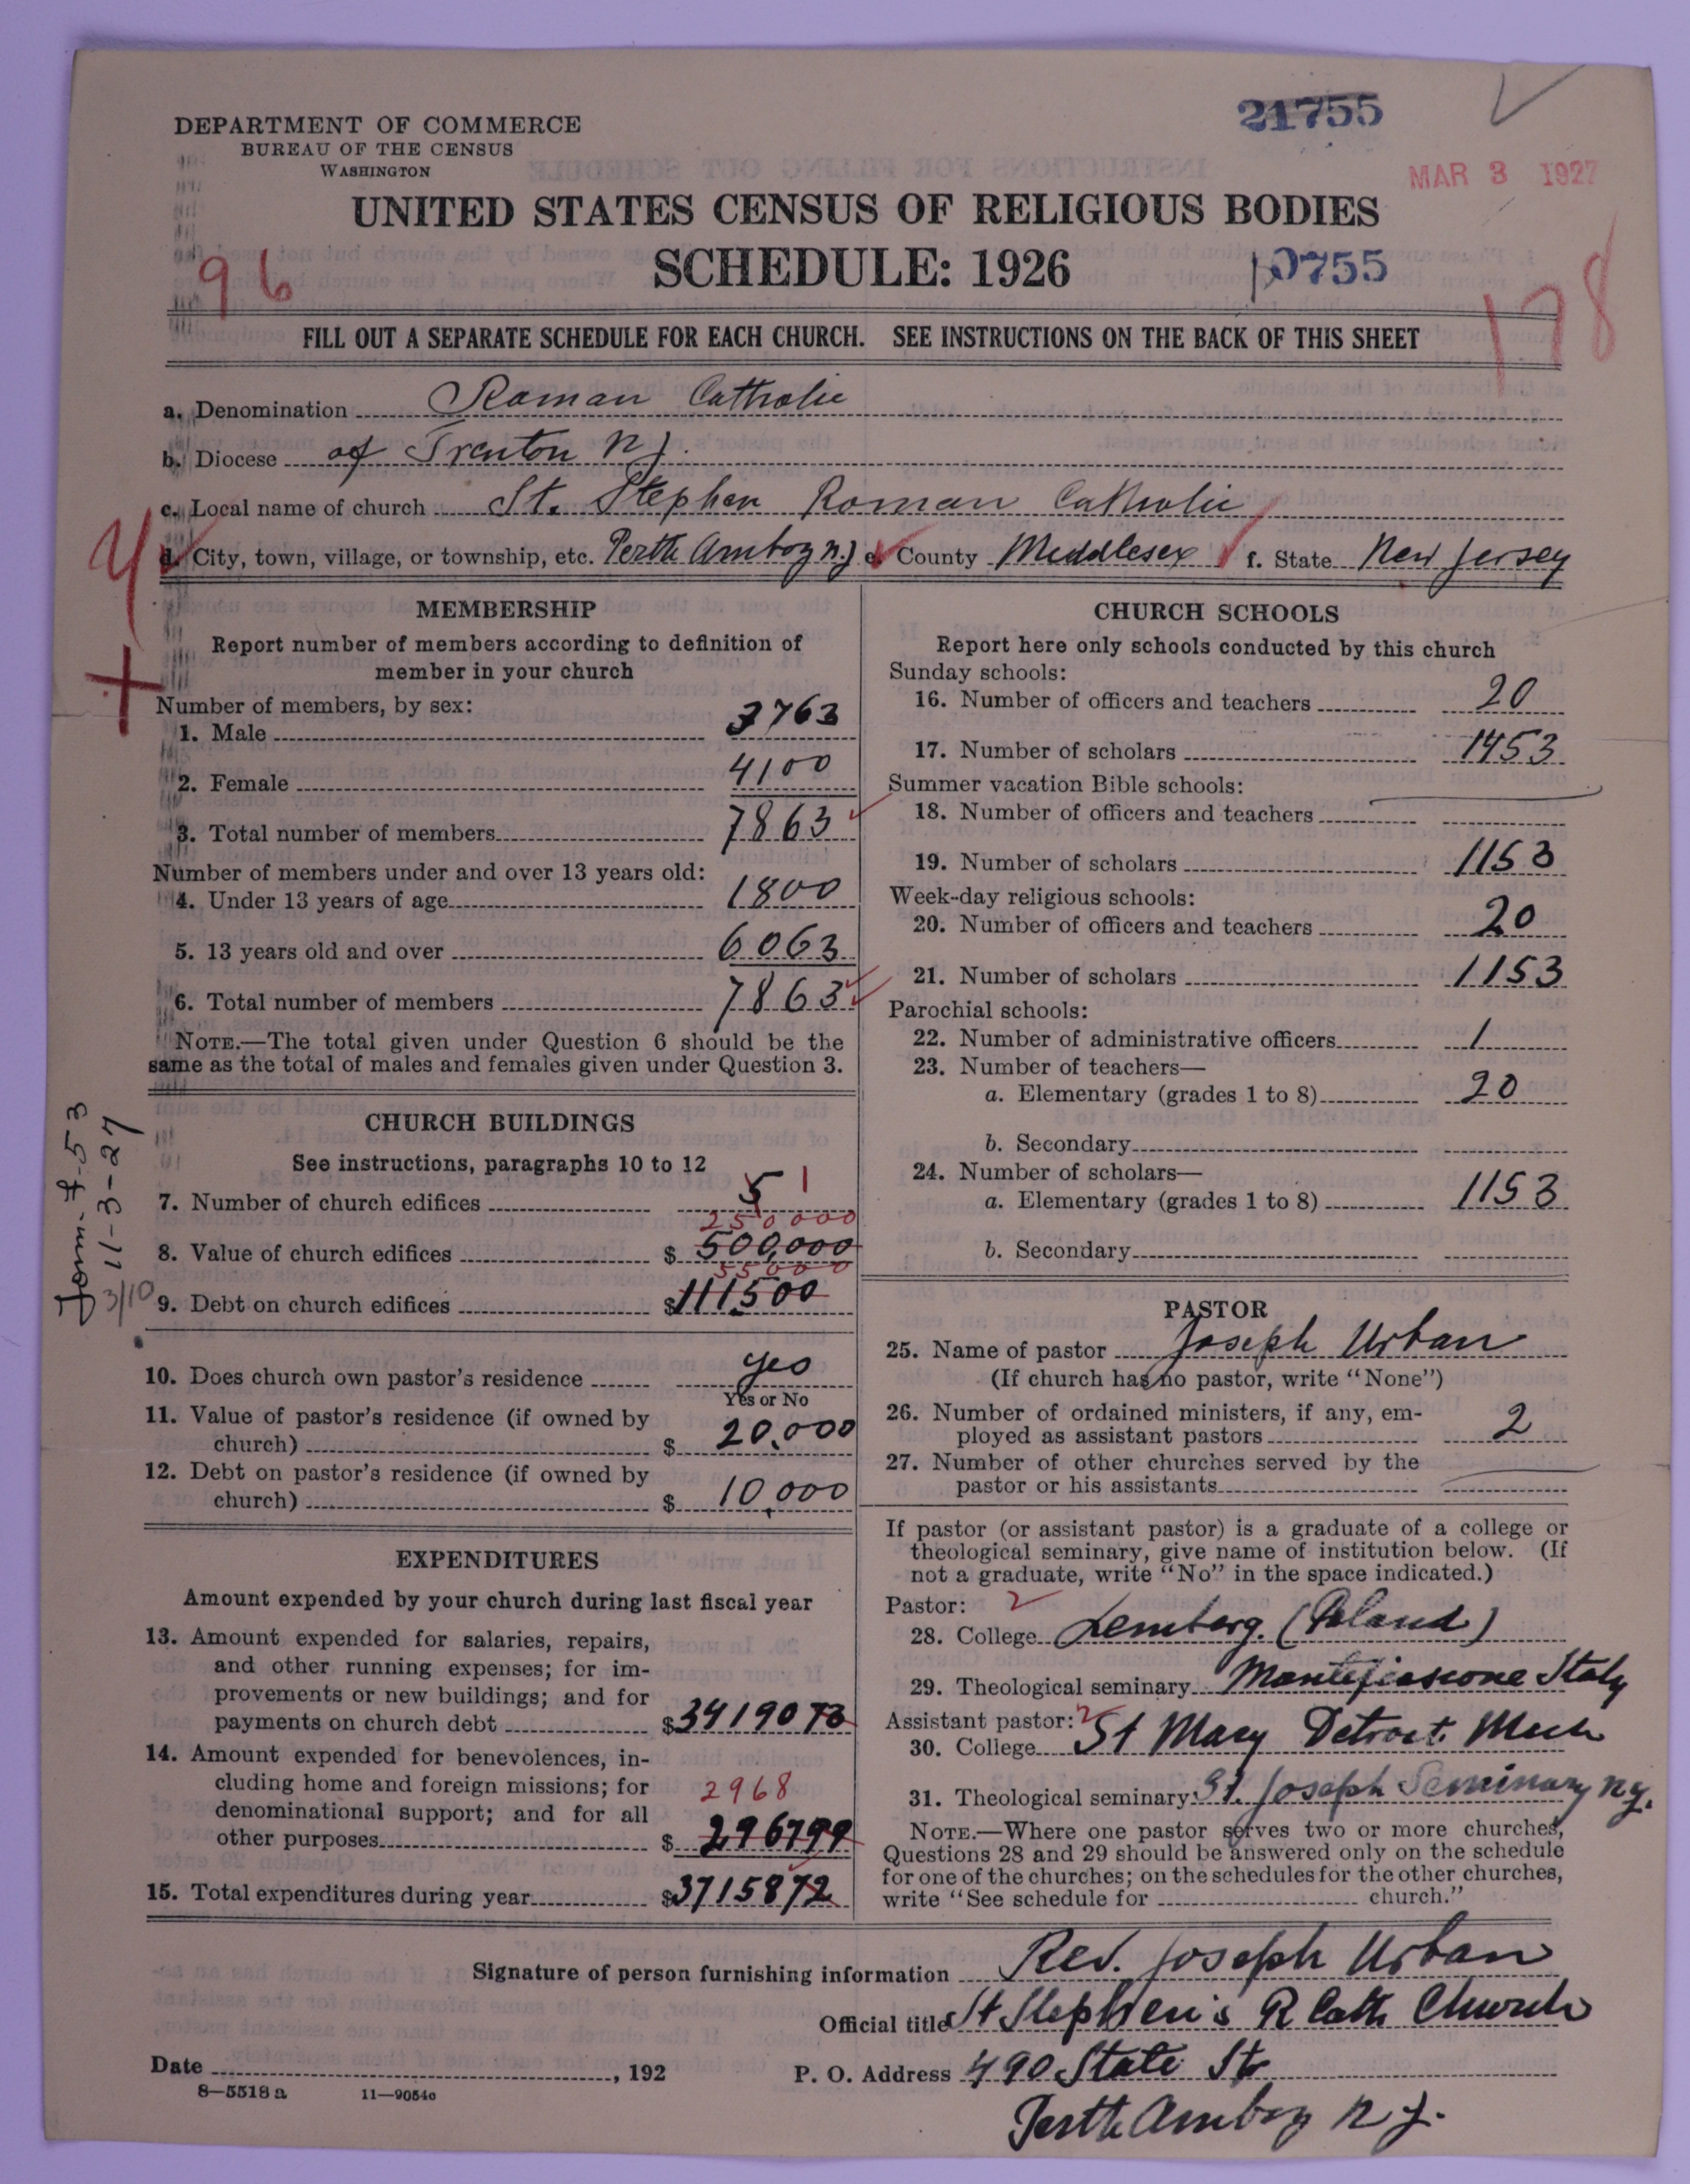 21755
DEPARTMENT OF COMMERCE
BUREAU OF THE CENSUS
WASHINGTON
MAR 3 1927
UNITED STATES CENSUS OF RELIGIOUS BODIES
SCHEDULE: 1926
0755
96
178
FILL OUT A SEPARATE SCHEDULE FOR EACH CHURCH. SEE INSTRUCTIONS ON THE BACK OF THIS SHEET
a. Denomination Roman Catholic
b. Diocese of Trenton N J.
c. Local name of church St. Stephen Roman Catholic
d. City, town, village, or township, etc. Perth Amboy N.J e. County Middlesex f. State New Jersey
MEMBERSHIP
Report number of members according to definition of
member in your church
Number of members, by sex:
1. Male 3763
2. Female 4100
3. Total number of members 7863
Number of members under and over 13 years old:
4. Under 13 years of age 1800
5. 13 years old and over 6063
6. Total number of members 7863
NOTE.—The total given under Question 6 should be the
same as the total of males and females given under Question 3.
CHURCH BUILDINGS
See instructions, paragraphs 10 to 12
7. Number of church edifices 5 1
250000
8. Value of church edifices $ 500,000
55000
9. Debt on church edifices $111500
11-3-27
3/10
10. Does church own pastor's residence yes
Yes or No
11. Value of pastor's residence (if owned by
church) $ 20,000
12. Debt on pastor's residence (if owned by
church) $ 10,000
EXPENDITURES
Amount expended by your church during last fiscal year
13. Amount expended for salaries, repairs,
and other running expenses; for im-
provements or new buildings; and for
payments on church debt $3419073
14. Amount expended for benevolences, in-
cluding home and foreign missions; for
2968
denominational support; and for all
other purposes $ 296799
15. Total expenditures during year $3715872
CHURCH SCHOOLS
Report here only schools conducted by this church
Sunday schools:
16. Number of officers and teachers 20
17. Number of scholars 1453
Summer vacation Bible schools:
18. Number of officers and teachers
19. Number of scholars 1153
Week-day religious schools:
20. Number of officers and teachers 20
21. Number of scholars 1153
Parochial schools:
22. Number of administrative officers 1
23. Number of teachers—
a. Elementary (grades 1 to 8) 20
b. Secondary
24. Number of scholars—
a. Elementary (grades 1 to 8) 1153
b. Secondary
PASTOR
25. Name of pastor Joseph Urban
(If church has no pastor, write "None")
26. Number of ordained ministers, if any, em-
ployed as assistant pastors 2
27. Number of other churches served by the
pastor or his assistants
If pastor (or assistant pastor) is a graduate of a college or
theological seminary, give name of institution below. (If
not a graduate, write "No" in the space indicated.)
Pastor: 2
28. College Lemberg. (Poland)
29. Theological seminary Montefiascone Italy
Assistant pastor: 2
30. College St Mary Detroit. Mich
31. Theological seminary St. Joseph Seminary N.Y.
NOTE.—Where one pastor serves two or more churches,
Questions 28 and 29 should be answered only on the schedule
for one of the churches; on the schedules for the other churches,
write "See schedule for church."
Signature of person furnishing information Rev. Joseph Urban
Official title St Stephen's R Cath Church
Date , 192
P. O. Address 490 State St
Perth Amboy N J.
8—5518 a 11—9054c